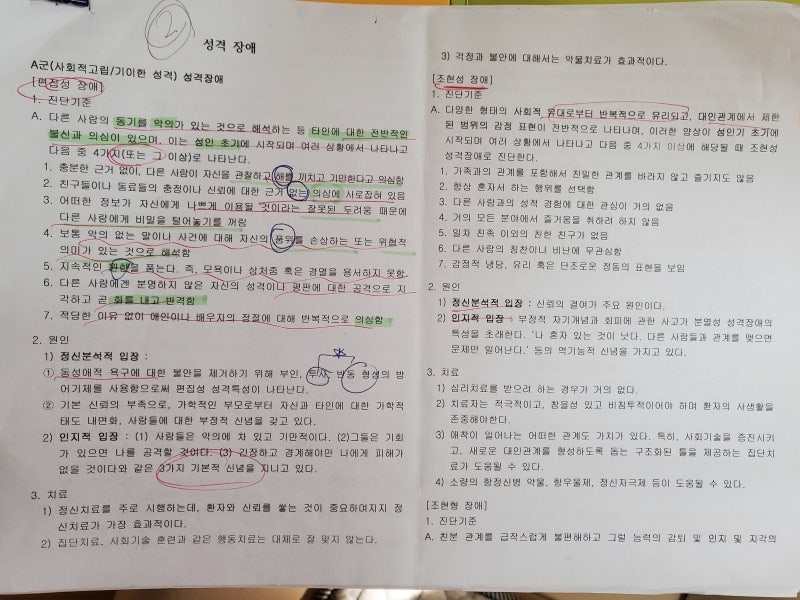 ②
성격 장애
A군(사회적고립/기이한 성격) 성격장애
[편집성 장애]
1. 진단기준
A. 다른 사람의 동기를 악의가 있는 것으로 해석하는 등 타인에 대한 전반적인
불신과 의심이 있으며, 이는 성인 초기에 시작되며 여러 상황에서 나타나고
다음 중 4가지(또는 그 이상)로 나타난다.
1. 충분한 근거 없이, 다른 사람이 자신을 관찰하고 해를 끼치고 기만한다고 의심함
2. 친구들이나 동료들의 충정이나 신뢰에 대한 근거 없는 의심에 사로잡혀 있음
3. 어떠한 정보가 자신에게 나쁘게 이용될 것이라는 잘못된 두려움 때문에
다른 사람에게 비밀을 털어놓기를 꺼림
4. 보통 악의 없는 말이나 사건에 대해 자신의 품위를 손상하는 또는 위협적
의미가 있는 것으로 해석함
5. 지속적인 원한을 품는다. 즉, 모욕이나 상처줌 혹은 경멸을 용서하지 못함
6. 다른 사람에겐 분명하지 않은 자신의 성격이나 평판에 대한 공격으로 지
각하고 곧 화를 내고 반격함
7. 적당한 이유 없이 애인이나 배우자의 정절에 대해 반복적으로 의심함
2. 원인
1) 정신분석적 입장 :
① 동성애적 욕구에 대한 불안을 제거하기 위해 부인, 투사, 반동 형성의 방
어기제를 사용함으로써 편집성 성격특성이 나타난다.
② 기본 신뢰의 부족으로, 가학적인 부모로부터 자신과 타인에 대한 가학적
태도 내면화, 사람들에 대한 부정적 신념을 갖고 있다.
2) 인지적 입장 : (1) 사람들은 악의에 차 있고 기만적이다. (2)그들은 기회
가 있으면 나를 공격할 것이다. (3) 긴장하고 경계해야만 나에게 피해가
없을 것이다와 같은 3가지 기본적 신념을 지니고 있다.
3. 치료
1) 정신치료를 주로 시행하는데, 환자와 신뢰를 쌓는 것이 중요하며지지 정
신치료가 가장 효과적이다.
2) 집단치료, 사회기술 훈련과 같은 행동치료는 대체로 잘 맞지 않는다.
3) 걱정과 불안에 대해서는 약물치료가 효과적이다.
[조현성 장애]
1. 진단기준
A. 다양한 형태의 사회적 유대로부터 반복적으로 유리되고, 대인관계에서 제한
된 범위의 감정 표현이 전반적으로 나타나며, 이러한 양상이 성인기 초기에
시작되며 여러 상황에서 나타나고 다음 중 4가지 이상에 해당될 때 조현성
성격장애로 진단한다.
1. 가족과의 관계를 포함해서 친밀한 관계를 바라지 않고 즐기지도 않음
2. 항상 혼자서 하는 행위를 선택함
3. 다른 사람과의 성적 경험에 대한 관심이 거의 없음
4. 거의 모든 분야에서 즐거움을 취하려 하지 않음
5. 일차 친족 이외의 친한 친구가 없음
6. 다른 사람의 칭찬이나 비난에 무관심함
7. 감정적 냉담, 유리 혹은 단조로운 정동의 표현을 보임
2. 원인
1) 정신분석적 입장 : 신뢰의 결여가 주요 원인이다.
2) 인지적 입장 : 부정적 자기개념과 회피에 관한 사고가 분열성 성격장애의
특성을 초래한다. '나 혼자 있는 것이 낫다. 다른 사람들과 관계를 맺으면
문제만 일어난다.' 등의 역기능적 신념을 가지고 있다.
3. 치료
1) 심리치료를 받으려 하는 경우가 거의 없다.
2) 치료자는 적극적이고, 참을성 있고 비침투적이어야 하며 환자의 사생활을
존중해야한다.
3) 애착이 일어나는 어떠한 관계도 가치가 있다. 특히, 사회기술을 증진시키
고, 새로운 대인관계를 형성하도록 돕는 구조화된 틀을 제공하는 집단치
료가 도움될 수 있다.
4) 소량의 항정신병 약물, 항우울제, 정신자극제 등이 도움될 수 있다.
[조현형 장애]
1. 진단기준
A. 친분 관계를 급작스럽게 불편해하고 그럴 능력의 감퇴 및 인지 및 지각의